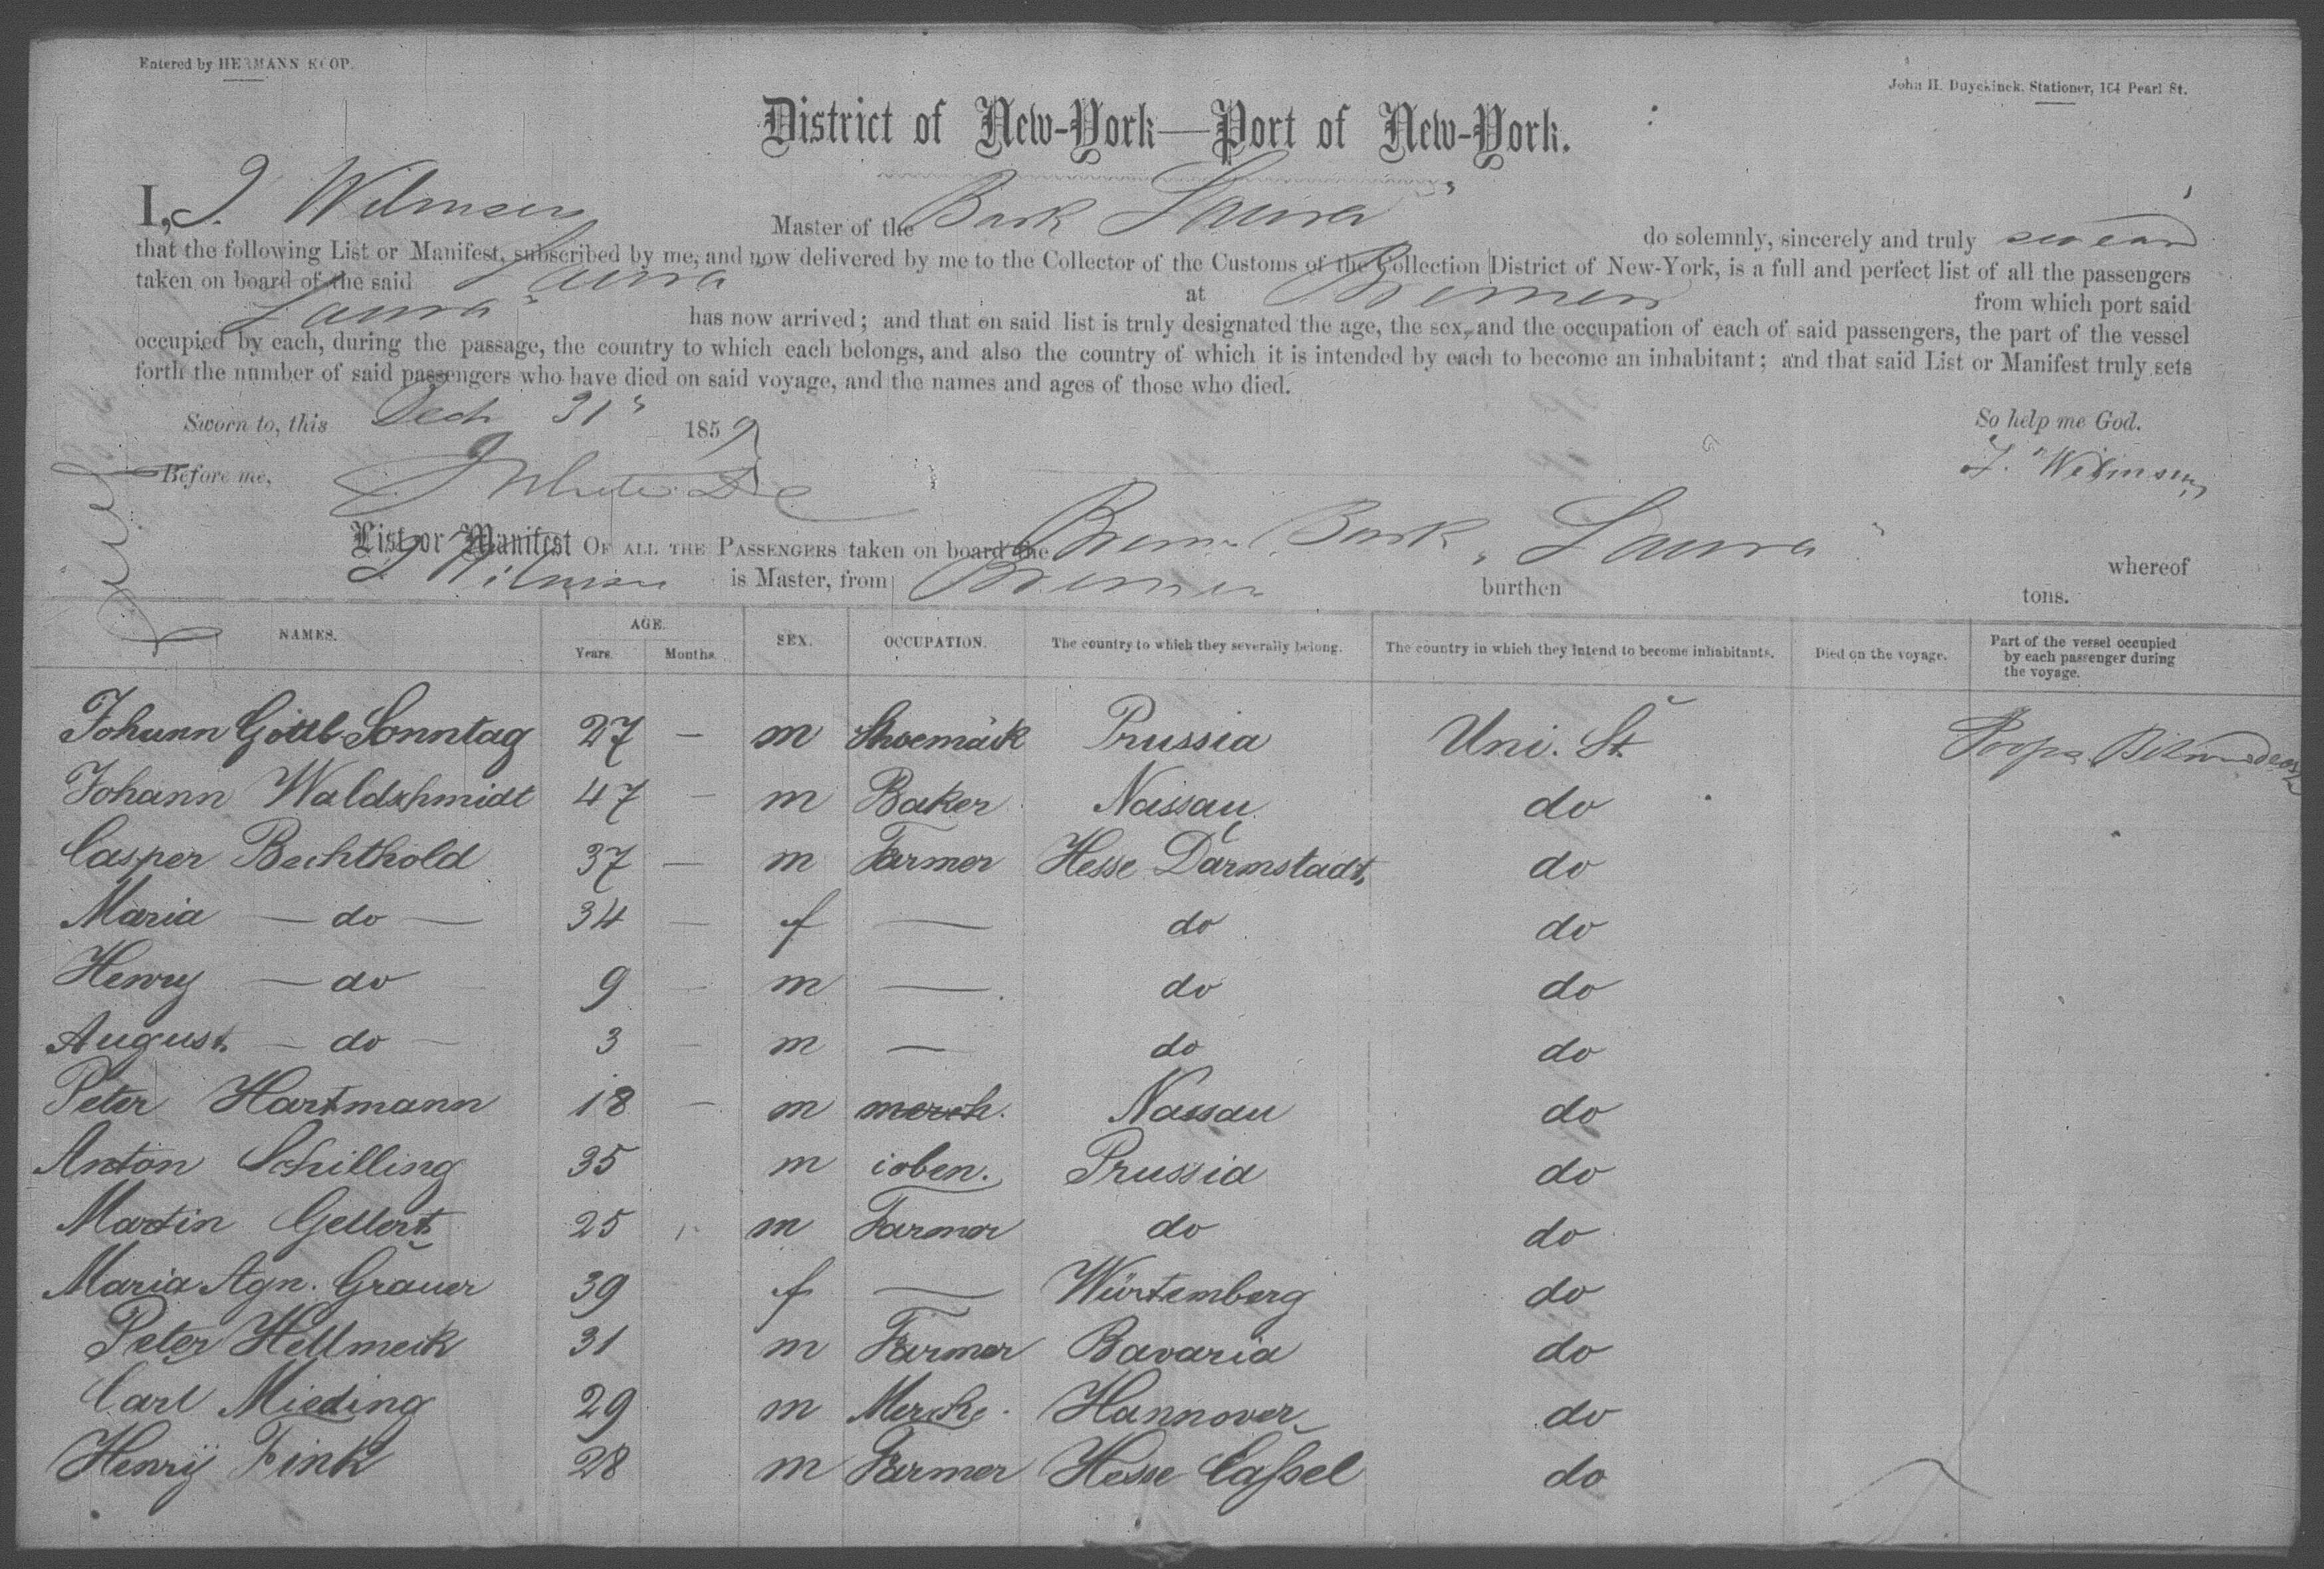 Entered by HERMANN KOOP.
John H. Duyckinck, Stationer, 164 Pearl St.
District of New-York—Port of New-York.
I, J. Wilmsen Master of the Bark Laura" do solemnly, sincerely and truly swear
that the following List or Manifest, subscribed by me, and now delivered by me to the Collector of the Customs of the Collection District of New-York, is a full and perfect list of all the passengers
taken on board of the said Laura" at Bremen from which port said
Laura" has now arrived; and that on said list is truly designated the age, the sex, and the occupation of each of said passengers, the part of the vessel
occupied by each, during the passage, the country to which each belongs, and also the country of which it is intended by each to become an inhabitant; and that said List or Manifest truly sets
forth the number of said passengers who have died on said voyage, and the names and ages of those who died.
Sworn to, this Dech 31" 1859 So help me God.
Before me, J. Wilmsen
List or Manifest OF ALL THE PASSENGERS taken on board the Brem. Bark "Laura" whereof
J Wilmsen is Master, from Bremen burthen tons.
NAMES. AGE. Years. Months. SEX. OCCUPATION. The country to which they severally belong. The country in which they intend to become inhabitants. Died on the voyage. Part of the vessel occupied by each passenger during the voyage.
Johann Gottl Sonntag 27 — m Shoemaik Prussia Uni. St.
Johann Waldschmidt 47 — m Baker Nassau do
Casper Bechthold 37 — m Farmer Hesse Darmstadt do
Maria — do — 34 — f — do do
Henry — do 9 — m — do do
August — do — 3 — m — do do
Peter Hartmann 18 — m merch. Nassau do
Anton Schilling 35 m Prussia do
Martin Gellert 25 m Farmer do do
Maria Agn. Grauer 39 f — Würtemberg do
Peter Hellmeck 31 m Farmer Bavaria do
Carl Mieding 29 m Merch. Hannover do
Henry Fink 28 m Farmer Hesse Caßel do